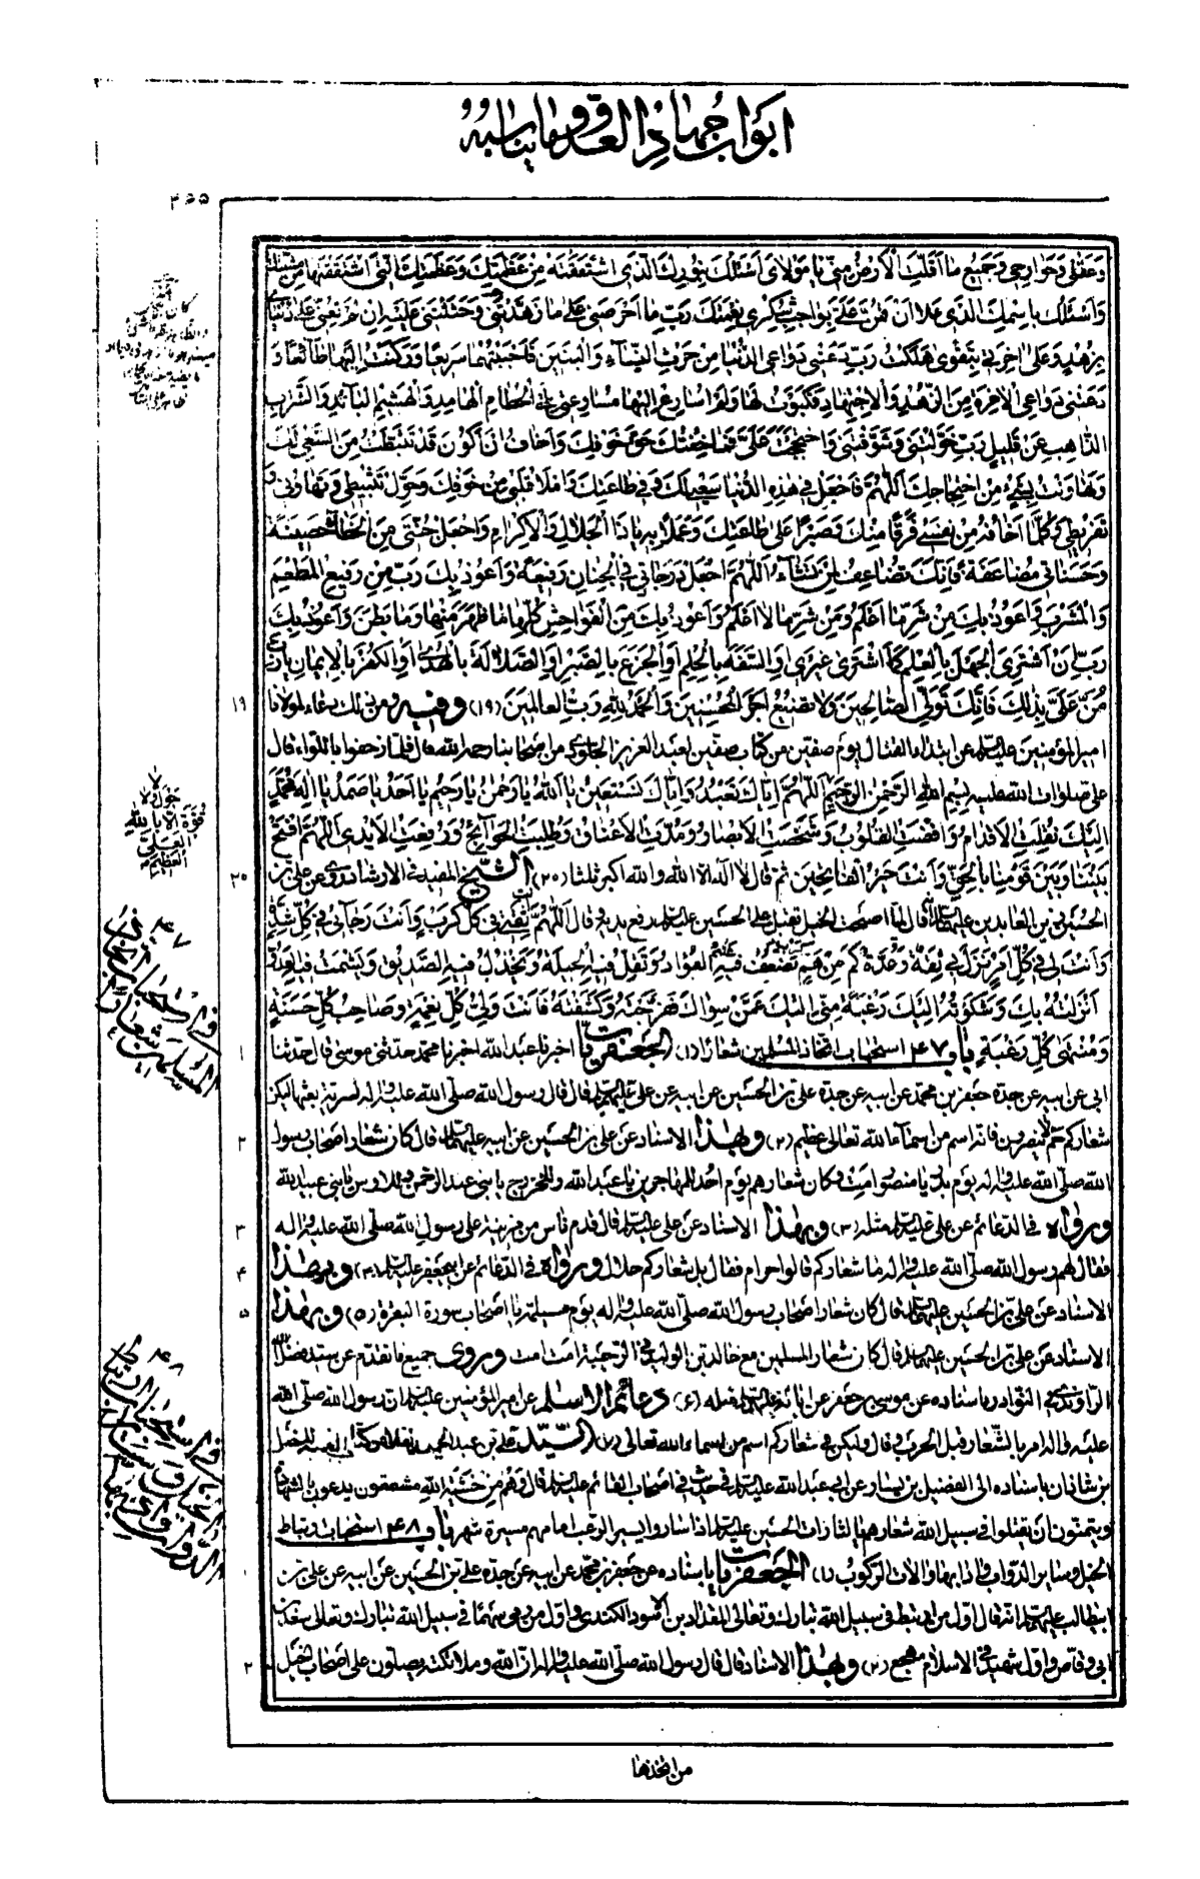 ابواب جهاد العدو وما يناسبه
وعقلي وجوارحي وجميع ما اقلت الأرض مني يا مولاي اسئلك بنورك الذي اشتققته من عظمتك وعظمتك التي اشتققتها من مشيتك
واسئلك باسمك الذي علا ان تمن علي بواجب شكري نعمتك رب ما احرصني على ما زهدتني فيه وحثثتني عليه ان لم تعني على دنياي
بزهد وعلى اخرتي بتقوى هلكت رب دعتني دواعي الدنيا من حرث النساء والبنين فاجبتها سريعا وركنت اليها طائعا و
دعتني دواعي الاخرة من الزهد والاجتهاد فكبوت لها ولم اسارع اليها مسارعتي الى الحطام الهامد والهشيم البائد والشراب
الذاهب عن قليل رب خوفتني وشوقتني واحتججت علي فما خفتك حق خوفك واخاف ان اكون قد تثبطت عن السعي لك
وتهاونت بشيء من احتجاجك اللهم فاجعل في هذه الدنيا سعيي لك وفي طاعتك واملأ قلبي من خوفك وحول تثبيطي وتهاوني و
تفريطي وكلما اخافه من نفسي فرقا منك وصبرا على طاعتك وعملا به يا ذا الجلال والاكرام واجعل جنتي من الخطايا حصينة
وحسناتي مضاعفة فانك تضاعف لمن تشاء اللهم اجعل درجاتي في الجنان رفيعة واعوذ بك رب من رفيع المطعم
والمشرب واعوذ بك من شر ما اعلم ومن شر ما لا اعلم واعوذ بك من الفواحش كلها ما ظهر منها وما بطن واعوذ بك
رب ان اشتري الجهل بالعلم كما اشترى غيري او السفه بالحلم او الجزع بالصبر او الضلالة بالهدى او الكفر بالايمان يا رب
من علي بذلك فانك تتولى الصالحين ولا تضيع اجر المحسنين والحمد لله رب العالمين (١٩) وفيه ومن ذلك دعاء لمولانا
امير المؤمنين عليه السلم عن ابتداء القتال يوم صفين من كتاب صفين لعبد العزيز الجلودي من اصحابنا رحمه الله قال فلما زحفوا باللواء قال
علي صلوات الله عليه بسم الله الرحمن الرحيم اللهم اياك نعبد واياك نستعين يا الله يا رحمن يا رحيم يا احد يا صمد يا اله محمد
اليك نقلت الاقدام وافضت القلوب وشخصت الابصار ومدت الاعناق وطلبت الحوائج ورفعت الايدي اللهم افتح
بيننا وبين قومنا بالحق وانت خير الفاتحين ثم قال لا اله الا الله والله اكبر ثلثا (٢٠) الشيخ المفيد في الارشاد روى عن علي بن
الحسين زين العابدين عليهما السلم قال لما اصبحت الخيل تقبل على الحسين عليه السلم رفع يديه وقال اللهم انت ثقتي في كل كرب وانت رجائي في كل شدة
وانت لي في كل امر نزل بي ثقة وعدة كم من هم يضعف فيه الفؤاد وتقل فيه الحيلة ويخذل فيه الصديق ويشمت فيه العدو
انزلته بك وشكوته اليك رغبة مني اليك عمن سواك ففرجته وكشفته فانت ولي كل نعمة وصاحب كل حسنة
ومنتهى كل رغبة باب ٤٧ استحباب اتخاذ المسلمين شعارا (١) الجعفريات اخبرنا عبد الله اخبرنا محمد حدثني موسى قال حدثنا
ابي عن ابيه عن جده جعفر بن محمد عن ابيه عن جده علي بن الحسين عن ابيه عن علي عليهم السلم قال قال رسول الله صلى الله عليه واله لسرية بعثها ليكن
شعاركم حم لا ينصرون فانه اسم من اسماء الله تعالى عظيم (٢) وبهذا الاسناد عن علي بن الحسين عن ابيه عليهما السلم قال كان شعار اصحاب رسول
الله صلى الله عليه واله يوم بدر يا منصور امت وكان شعارهم يوم احد للمهاجرين يا بني عبد الله وللخزرج يا بني عبد الرحمن وللاوس يا بني عبيد الله
ورواه في الدعائم عن علي عليه السلم مثله (٣) وبهذا الاسناد عن علي عليه السلم قال قدم ناس من مزينة على رسول الله صلى الله عليه واله
فقال لهم رسول الله صلى الله عليه واله ما شعاركم قالوا حرام فقال بل شعاركم حلال ورواه في الدعائم عن ابي جعفر عليه السلم (٤) وبهذا
الاسناد عن علي بن الحسين عليهما السلم قال كان شعار اصحاب رسول الله صلى الله عليه واله يوم مسيلمة يا اصحاب سورة البقرة (٥) وبهذا
الاسناد عن علي بن الحسين عليهما السلم قال كان شعار المسلمين مع خالد بن الوليد في الرحبة امت امت وروى جميع ما تقدم عن سيد فضل الله
الراوندي في النوادر باسناده عن موسى بن جعفر عن ابائه عليهم السلم مثله (٦) دعائم الاسلام عن امير المؤمنين عليه السلم ان رسول الله صلى الله
عليه واله امر بالشعار قبل الحرب وقال وليكن في شعاركم اسم من اسماء الله تعالى (٧) السيد علي بن عبد الحميد نقلا من كتاب الغيبة للفضل
بن شاذان باسناده الى الفضيل بن يسار عن ابي عبد الله عليه السلم في حديث في اصحاب القائم عليه السلم قال وهم من خشية الله مشفقون يدعون بالشهادة
ويتمنون ان يقتلوا في سبيل الله شعارهم يا لثارات الحسين عليه السلم اذا ساروا يسير الرعب امامهم مسيرة شهر باب ٤٨ استحباب ارتباط
الخيل وساير الدواب واداتها والات الركوب (١) الجعفريات باسناده عن جعفر بن محمد عن ابيه عن جده علي بن الحسين عن ابيه عن علي بن
ابيطالب عليهم السلم انه قال اول من ارتبط في سبيل الله تبارك وتعالى المقداد بن الاسود الكندي واول من رمى سهما في سبيل الله تبارك وتعالى سعد بن
ابي وقاص واول شهيد في الاسلام مهجع (٢) وبهذا الاسناد قال قال رسول الله صلى الله عليه واله ان الله وملائكته يصلون على اصحاب الخيل
من اتخذها
١٩
حول ولا
قوة الا بالله
العلي
العظيم
٢٠
٤٧
١
٢
٣
٤
٥
٤٨
١
٢